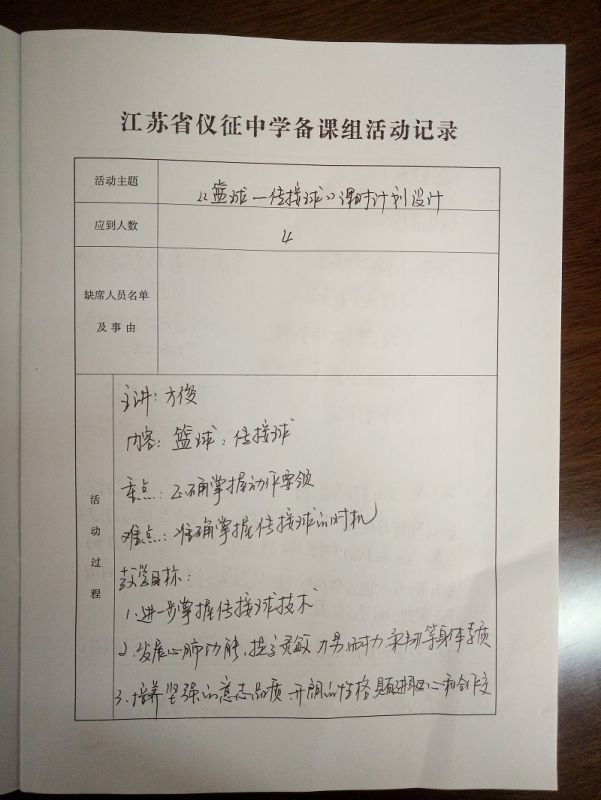 江苏省仪征中学备课组活动记录
活动主题
“篮球—传接球”课时计划设计
应到人数
4
缺席人员名单
及事由
活动过程
主讲：方俊
内容：篮球：传接球
重点：正确掌握动作要领
难点：准确掌握传接球的时机
教学目标：
1.进一步掌握传接球技术
2.发展心肺功能，提高灵敏 力量 耐力 柔韧等身体素质
3.培养坚强的意志品质 开朗的性格 进取心和合作